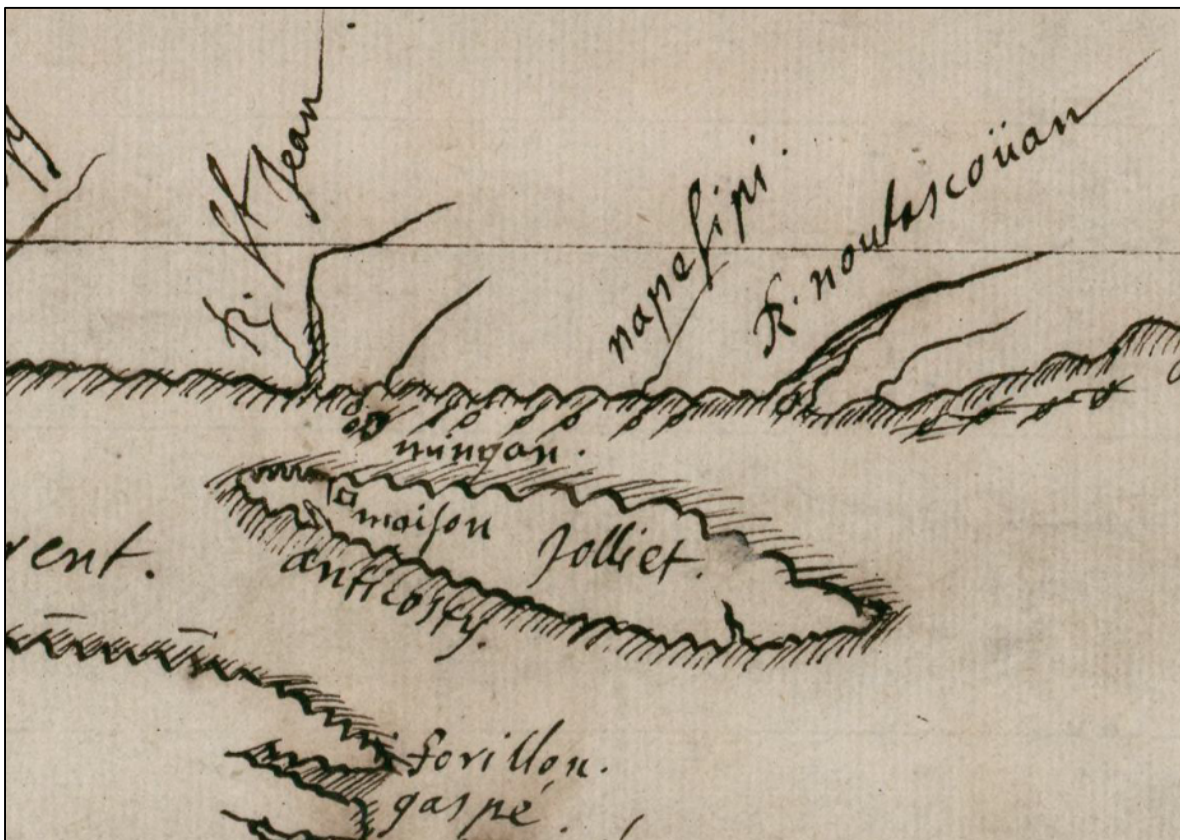 R. St Jean
napesipi
R. noutascoüan
mingan.
maison Jolliet.
anticosty.
rent.
forillon.
gaspé